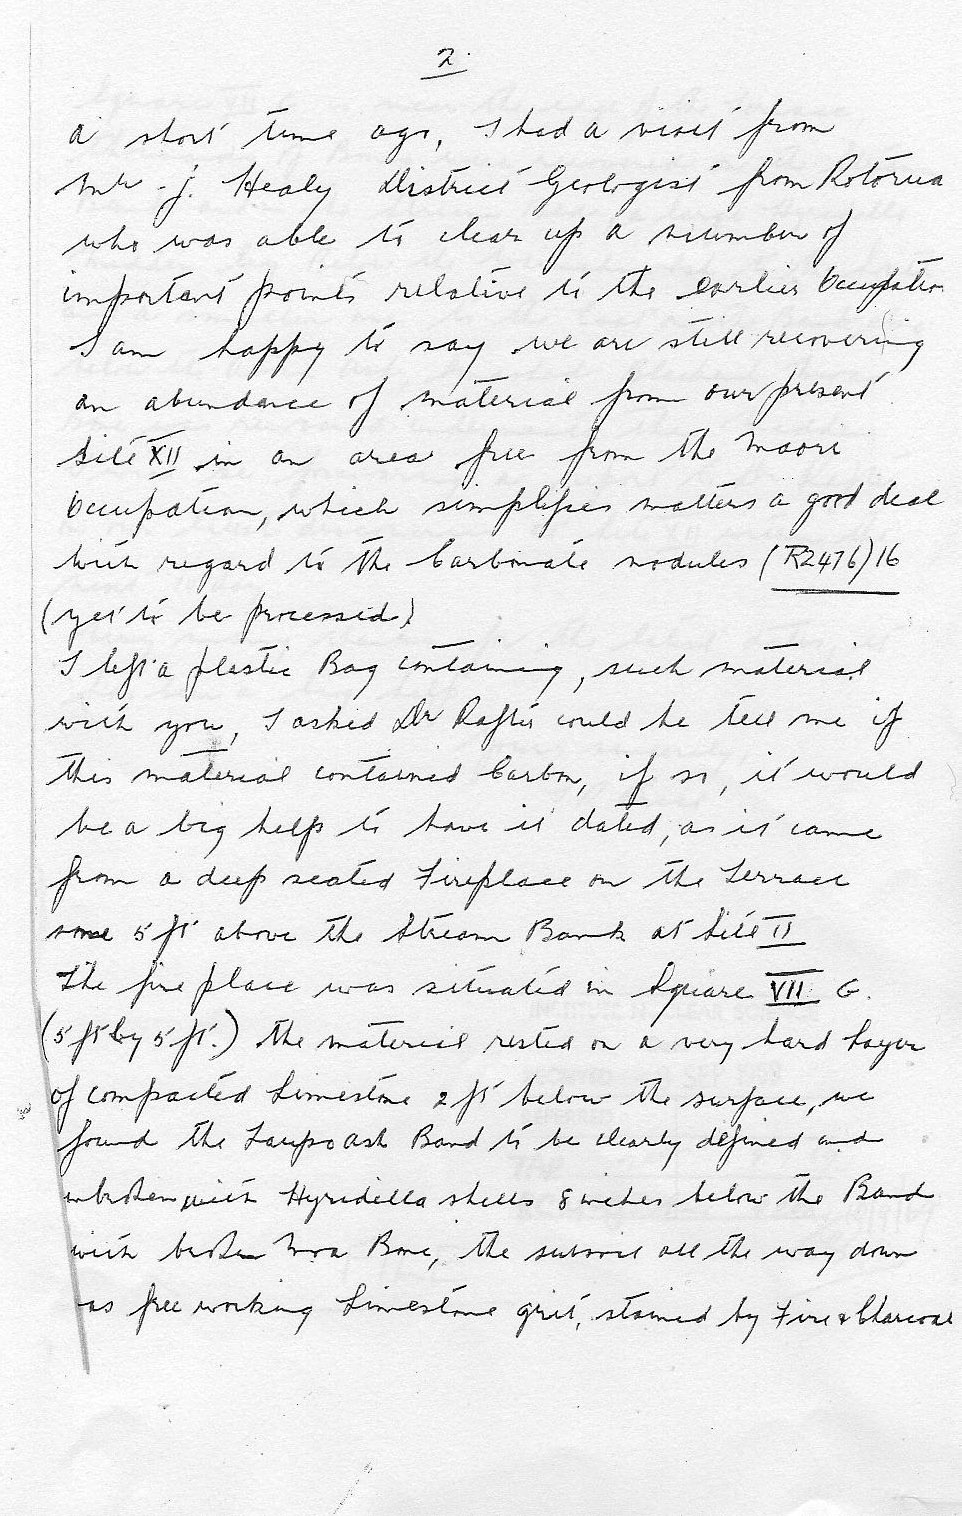 2.
A short time ago, I had a visit from
Mr. J. Healy District Geologist from Rotorua
who was able to clear up a number of
important points relative to the earlier Occupation
I am happy to say we are still recovering
an abundance of material from our present
Site XII in an area free from the Maori
Occupation, which simplifies matters a good deal
With regard to the Carbonate nodules (R2476)16
(yet to be processed)
I left a plastic Bag containing, such material
with you, I asked Dr Rafter could he tell me if
this material contained Carbon, if so, it would
be a big help to have it dated, as it came
from a deep seated Fireplace on the Terrace
some 5 ft above the Stream Bank at Site II
The fire place was situated in Square VII G.
(5 ft by 5 ft.) the material rested on a very hard layer
of compacted Limestone 2 ft below the surface, we
found the Taupo Ash Band to be clearly defined and
unbroken with Hyridella shells 8 inches below the Band
with broken Moa Bone, the subsoil all the way down
as free working Limestone grit, stained by Fire & Charcoal